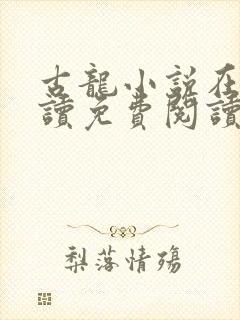 古龍小說在
讀免費閱讀
梨落情殤